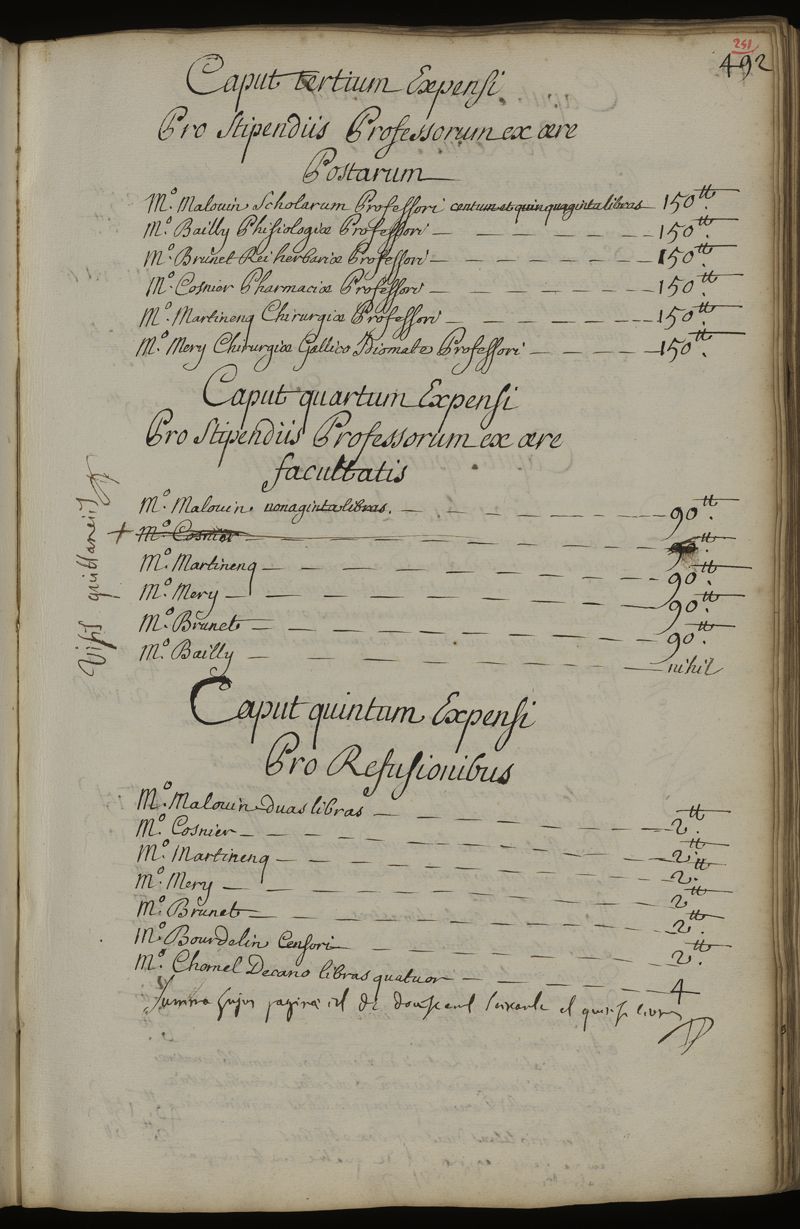 251
492
Caput tertium Expensi
Pro Stipendiis Professorum ex ære
Postarum
M.º Malouin Scholarum Professori centum et quinquaginta libras 150.tt
M.º Bailly Phisiologiæ Professori 150.tt
M.º Brunet Rei herbariæ Professori 150.tt
M.º Cosnier Pharmaciæ Professori 150.tt
M.º Martinenq Chirurgiæ Professori 150.tt
M.º Mery Chirurgiæ Gallico Idiomate Professori 150.tt
Caput quartum Expensi
Pro Stipendiis Professorum ex ære
facultatis
M.º Malouin. nonaginta libras. 90.tt
+ M.º Cosnier 90.tt
M.º Martinenq 90.tt
M.º Mery 90.tt
M.º Brunet 90.tt
M.º Bailly nihil
Visis quittanciis
Caput quintum Expensi
Pro Refusionibus
M.º Malouin duas libras 2.tt
M.º Cosnier 2.tt
M.º Martinenq 2.tt
M.º Mery 2.tt
M.º Brunet 2.tt
M.º Bourdelin Censori 2.tt
M.º Chomel Decano libras quatuor 4
Summa hujus paginæ est de douze cent soixante et quinze livres